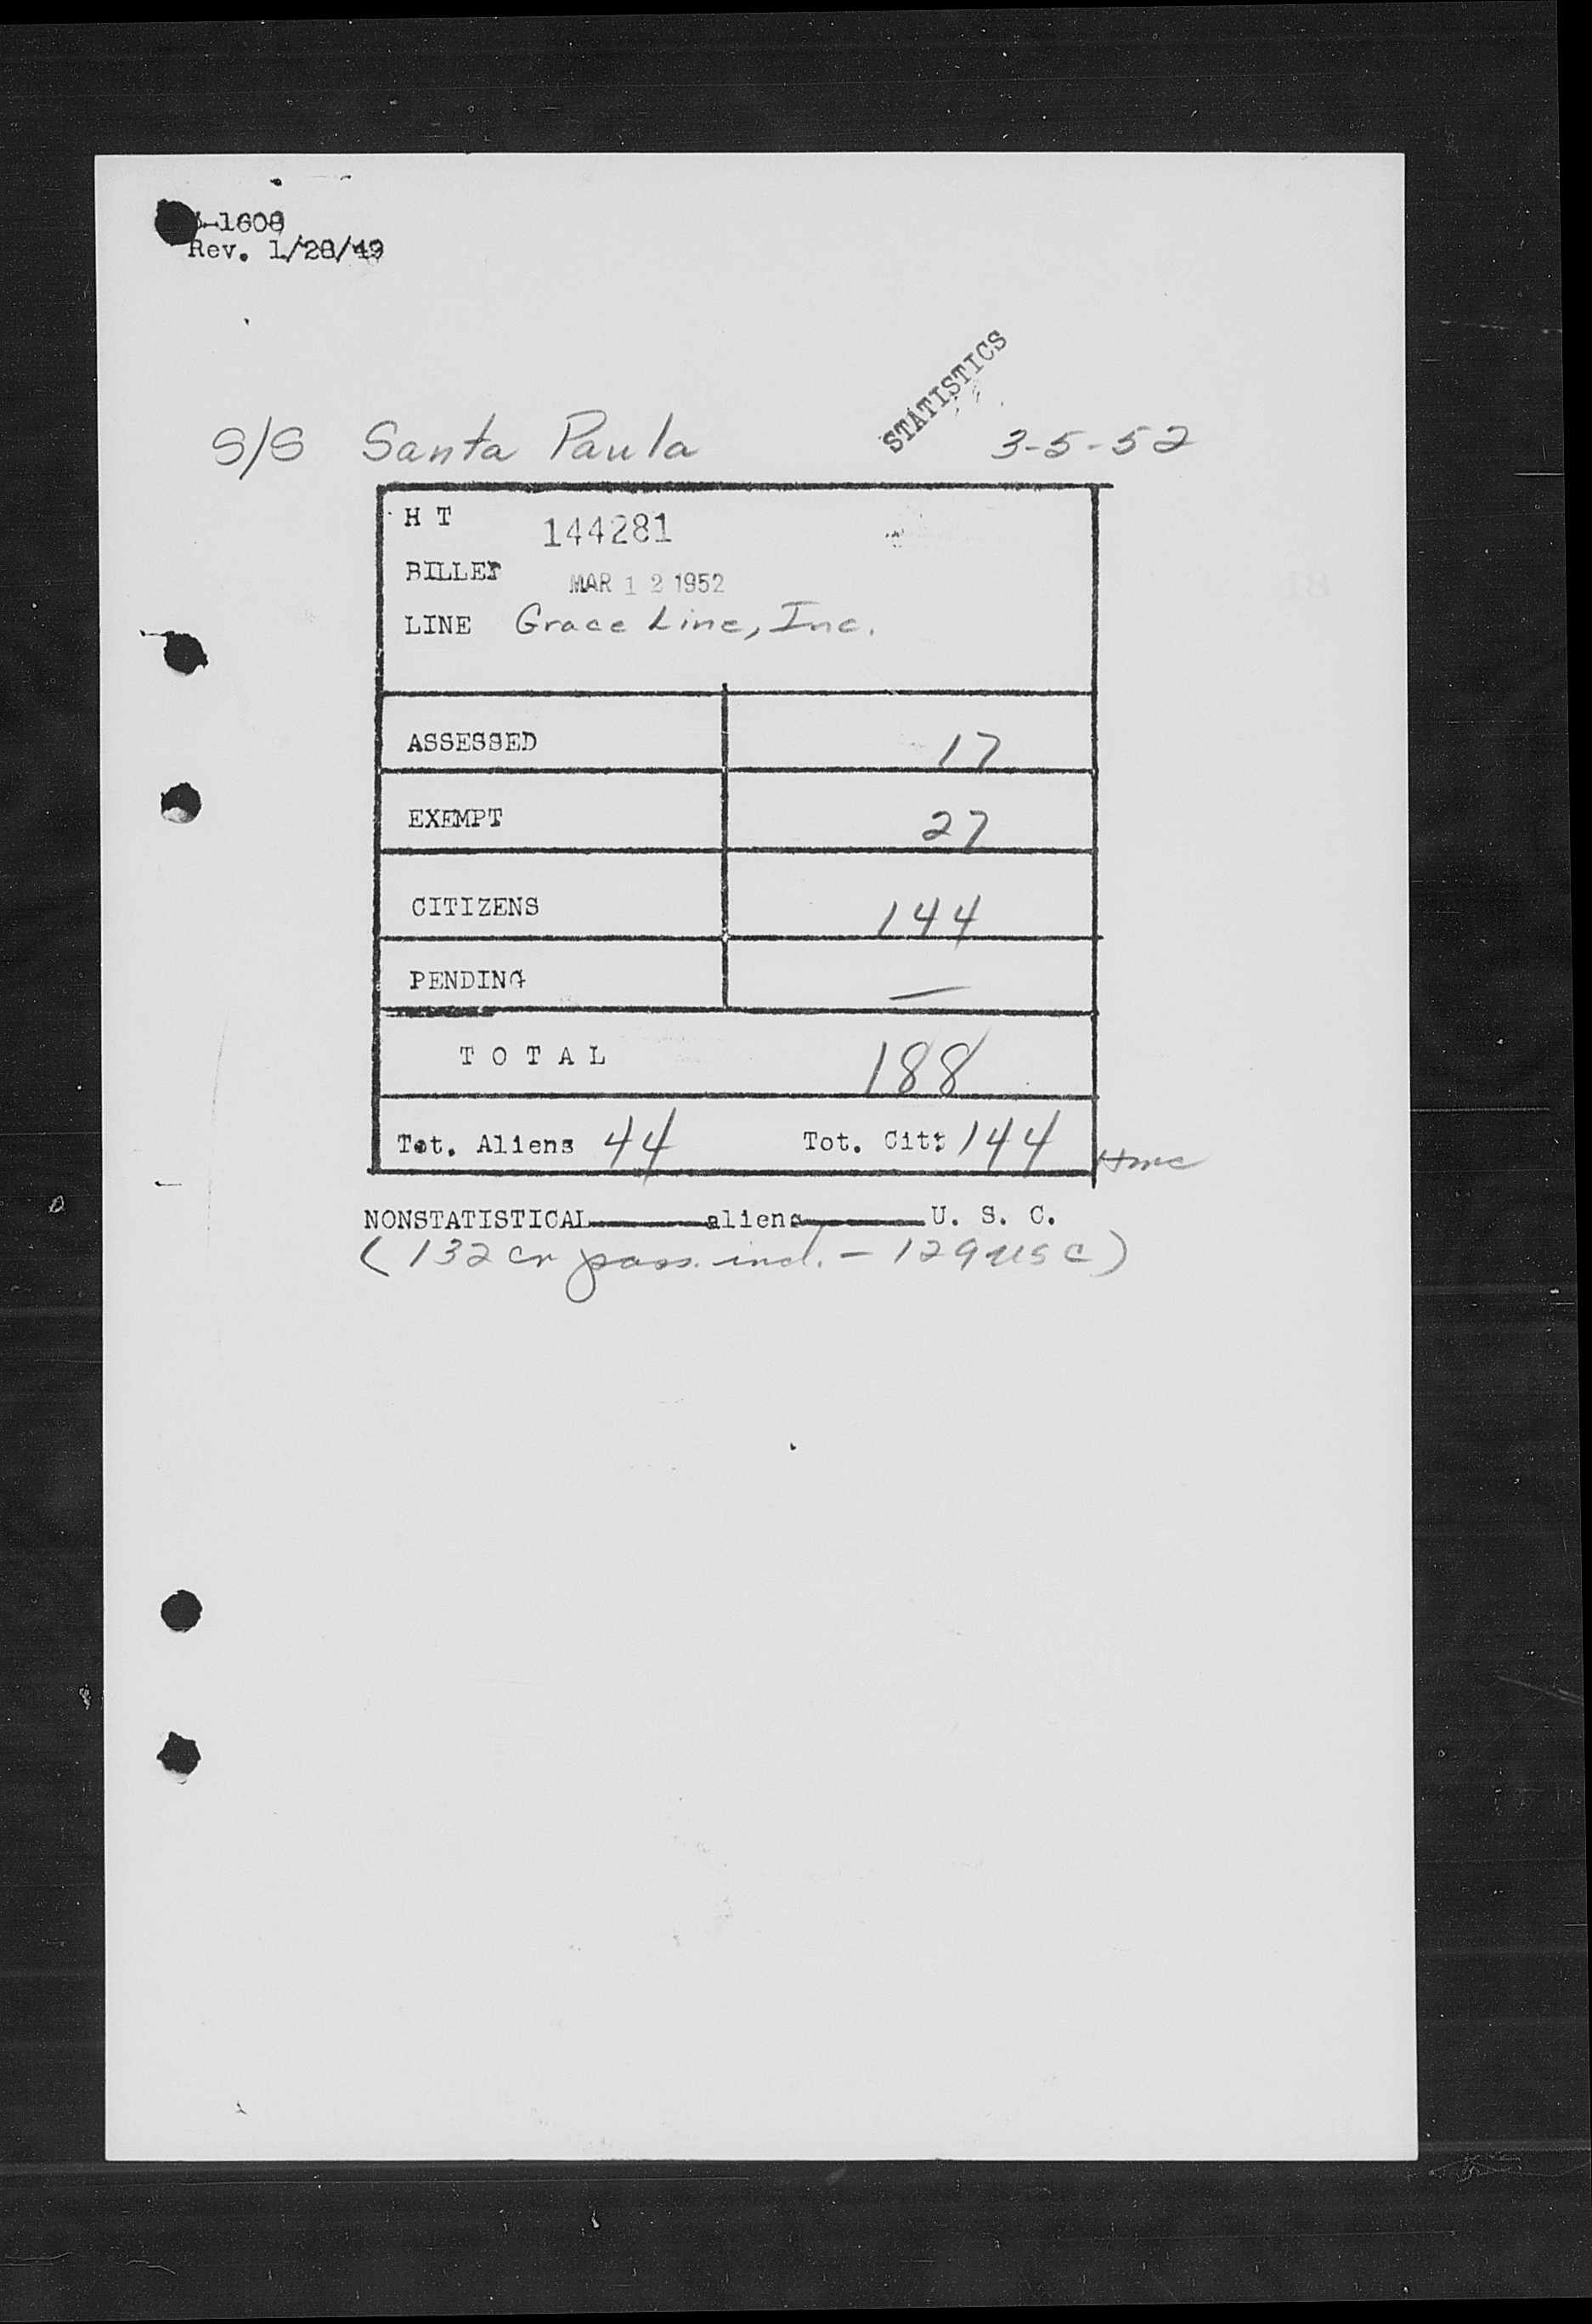 -1608
Rev. 1/28/49
STATISTICS
S/S Santa Paula 3-5-52
H T 144281
BILLET MAR 12 1952
LINE Grace Line, Inc.
ASSESSED 17
EXEMPT 27
CITIZENS 144
PENDING —
T O T A L 188
Tot. Aliens 44 Tot. Cit: 144
NONSTATISTICAL aliens U. S. C.
(132 cr pass. incl. - 129 USC)